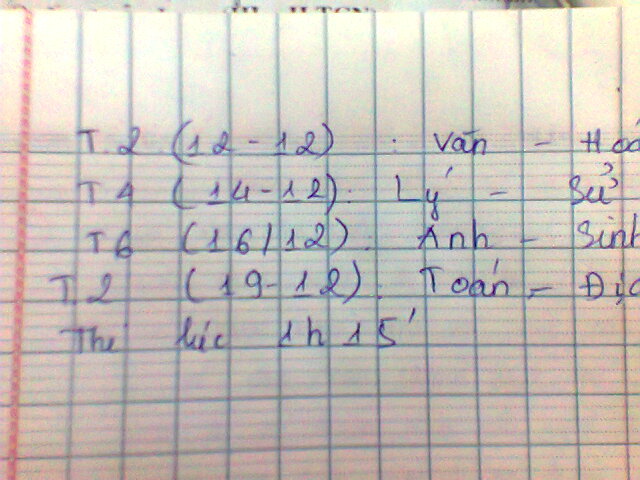 T.2 (12-12) : Văn - Hoá
T4 (14-12): Lý - Sử
T6 (16/12): Anh - Sinh
T.2 (19-12): Toán - Địa
Thi lúc 1h15'